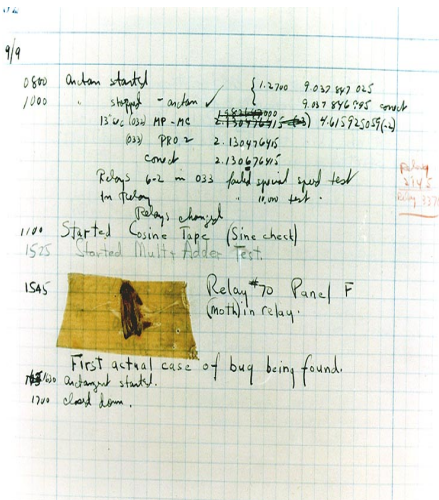 9/9
0800 antan started { 1.2700 9.037 847 025
1000 " stopped - antan ✓ 9.037 846 995 correct
13"uc (032) MP - MC 2.130476415 (-3) 4.615925059(-2)
(033) PRO 2 2.130476415
correct 2.130676415
Relays 6-2 in 033 failed special speed test
in Relay " 10,000 test.
Relay
2145
Relay 3370
Relays changed
1100 Started Cosine Tape (Sine check)
1525 Started Mult+Adder Test.
1545 Relay #70 Panel F
(moth) in relay.
First actual case of bug being found.
1630 antangent started.
1700 closed down.